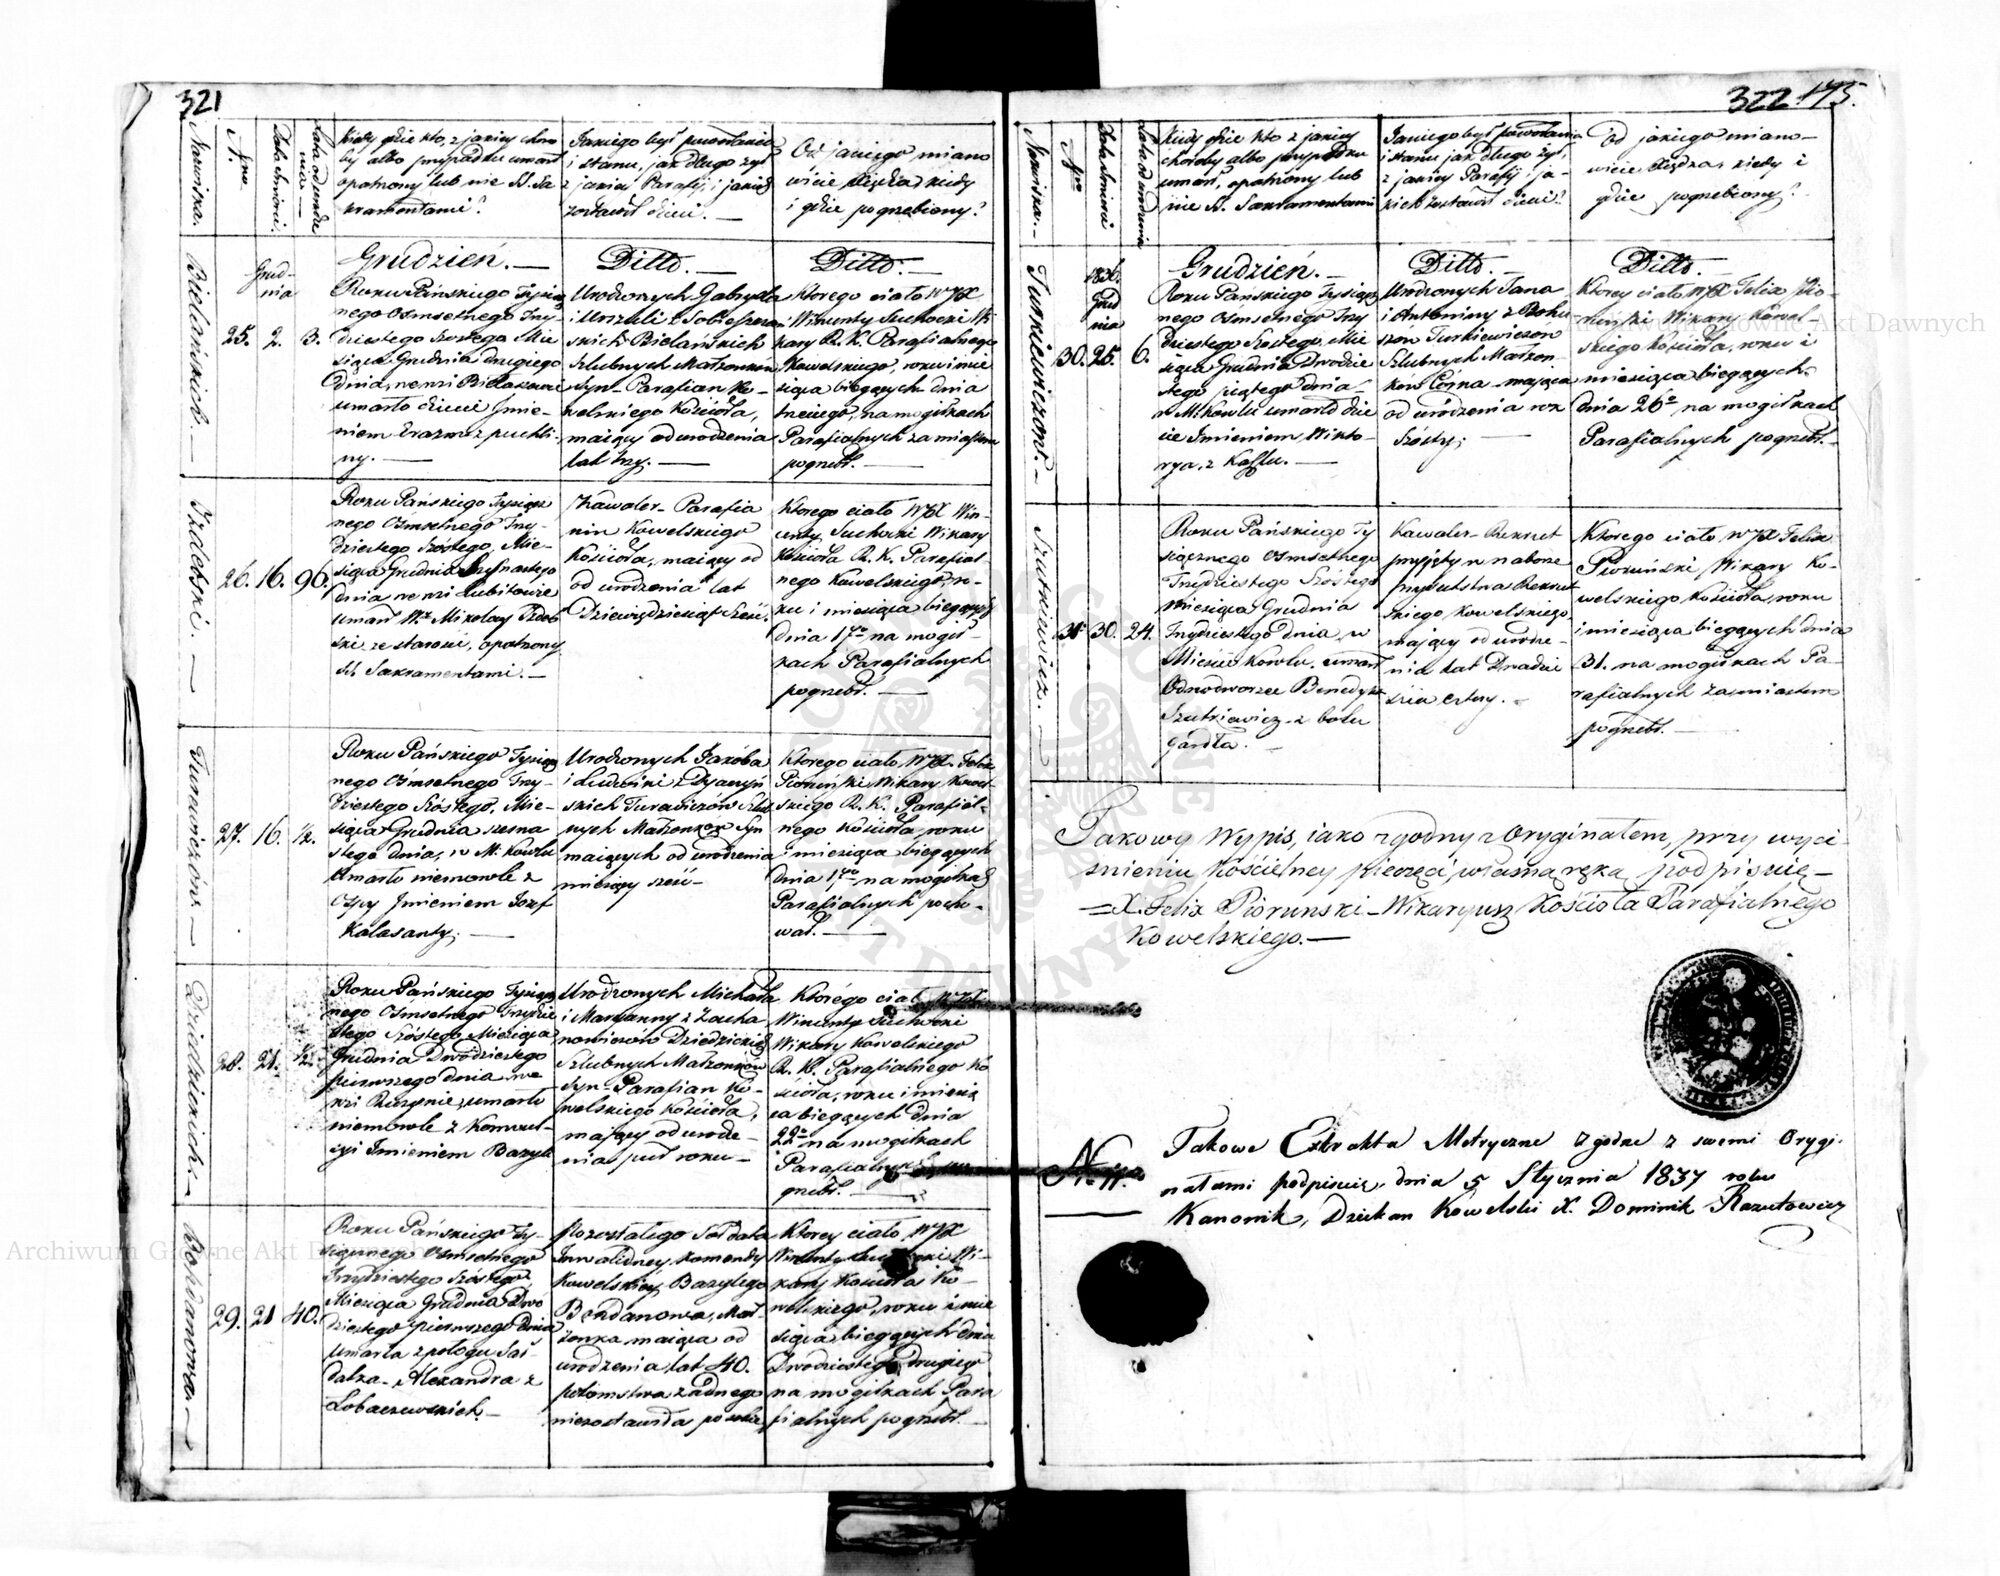 321
Nazwiska.
Nro
Data śmierci.
Lata od urodze
nia
Kiedy gdzie kto, z jakiey choro
by albo przypadku umarł
opatrzony lub nie SS. Sa
kramentami?
Jakiego był powołania
i stanu, jak długo żył
z jakiey Parafij, i jakich
zostawił dzieci. —
Od jakiego miano
wicie Xiędza kiedy
i gdzie pogrzebiony?
Bielańskich. —
Grud-
nia
25. 2. 3.
Grudzień. —
Roku Pańskiego Tysiącz
nego Osmsetnego Trzy-
dziestego Szostego Mie
siąca Grudnia drugiego
dnia, we wsi
umarło dziecie Jmie-
niem Erazm z puchli-
ny. —
Ditto. —
Urodzonych Gabryela
i Urszuli z
skich Bielańskich
Szlubnych Małżonków
Syn- Parafian Ko-
welskiego Kościoła,
maiący od urodzenia
lat trzy. —
Ditto. —
Ktorego ciało WJX
Wincenty Suchocki Wi
kary R. K. Parafialnego
Kowelskiego, roku i mie
siąca bieżących dnia
trzeciego, na mogiłkach
Parafialnych za miastem
pogrzebł. —
Izdebski. —
26. 16. 96.
Roku Pańskiego Tysiącz
nego Osmsetnego Trzy-
dziestego Szóstego, Mie-
siąca Grudnia Szesnastego
dnia we wsi Lubitowie
umarł Wny Mikołay Izdeb
ski ze starości, opatrzony
SS. Sakramentami. —
Kawaler- Parafia
nin Kowelskiego
Kościoła, maiący od
od urodzenia lat
Dziewięćdziesiąt Sześć.
Ktorego ciało WJX Win-
centy Suchocki Wikary
Kościoła R. K. Parafial-
nego Kowelskiego, ro-
ku i miesiąca bieżących
dnia 17go na mogił-
kach Parafialnych
pogrzebł. —
Turewiczów —
27. 16. ½.
Roku Pańskiego Tysiącz
nego Osmsetnego Trzy-
dziestego Szóstego, Mie-
siąca Grudnia szesna
stego dnia, w M. Kowlu
Umarło niemowle z
Ospy Jmieniem Jozef
Kalasanty. —
Urodzonych Jakóba
i Ludwiki z
skich Turewiczów Szlub
nych Małżonków Syn
maiących od urodzenia
miesięcy sześć-
Ktorego ciało, WJX. Felix
Pioruński Wikary Kowel-
skiego R. K. Parafial-
nego Kościoła, roku
i miesiąca bieżących
dnia 17go na mogiłkach
Parafialnych pocho-
wał. —
Dziedzickich —
28. 21. ½.
Roku Pańskiego Tysiącz
nego Osmsetnego Trzydzie
stego Szóstego Miesiąca
Grudnia Dwódziestego
pierwszego dnia we
wsi umarło
niemowle z Konwul-
syi Imieniem Bazyli
Urodzonych Michała
i Maryanny z Zacha
Dziedzickich
Szlubnych Małżonków
Syn- Parafian Ko-
welskiego Kościoła,
mający od urodze-
nia puł roku-
Którégo ciało WJX
Wincenty Suchocki
Wikary Kowelskiego
R. K. Parafialnego Ko
ścioła, roku i miesią
ca bieżących dnia
22go na mogiłkach
Parafialnych po
grzebł. —
Bohdanowa —
29. 21 40.
Roku Pańskiego Ty-
siącznego Osmsetnego
Trzydziestego Szóstego,
Miesiąca Grudnia Dwo
dziestego pierwszego dnia
umarła z połogu Soł-
datka- Alexandra z
Łobaczewskich. —
Pozostałego Sołdata
Inwalidney Komendy
Kowelskiéj Bazylego
Bohdanowa, Mał
żonka, maiąca od
urodzenia lat 40.
potomstwa żadnego
niezostawiła po sobie
Ktorey ciało, WJX
Wincenty Suchocki Wi-
kary Kościoła Ko-
welskiego, roku i mie
siąca bieżących dnia
Dwodziestego drugiego
na mogiłkach Para
fialnych pogrzebł. —
322 175.
Nazwiska. —
Nro
Data Śmierci
Lata od urodzenia
Kiedy gdzie kto z jakiey
choroby albo przypadku
umarł, opatrzony lub
nie SS. Sakramentami
Jakiego był powołania
i stanu jak długo żył,
z jakiey Parafij i ja-
kich zostawił dzieci?
Od jakiego miano-
wicie Xiędza, kiedy i
gdzie pogrzebiony?
Turkiewiczow. —
1836.
Grud
nia
30. 25. 6.
Grudzień. —
Roku Pańskiego Tysiącz
nego Osmsetnego Trzy
dziestego Szostego, Mie
siąca Grudnia Dwodzie
stego piątego dnia
w M. Kowlu umarło dzie
cie Imieniem, Wikto-
rya, z Kaszlu. —
Ditto. —
Urodzonych Jana
i Antoniny z
Turkiewiczów
Szlubnych Małżon-
ków Córka- mająca
od urodzenia rok
Szósty; —
Ditto. —
Ktorey ciało WJX Felix Pio-
ruński Wikary Kowel-
skiego Kościoła, roku i
miesiąca bieżących
dnia 26go na mogiłkach
Parafialnych pogrzebł. —
Szutkiewicz. —
31 30. 24.
Roku Pańskiego Ty
siącznego Osmsetnego
Trzydziestego Szóstego
miesiąca Grudnia
Trzydziestego dnia, w
Mieście Kowlu, umarł
Odnodworzec Benedykt
Szutkiewicz- z bolu
gardła. —
Kawaler- Rekrut
przyjęty w naborze
Rekrut
skiego Kowelskiego
mający od urodze-
nia lat Dwadzie
ścia cztery. —
Ktorego ciało, WJX Felix
Pioruński, Wikary Ko-
welskiego Kościoła, roku
i miesiąca bieżących dnia
31. na mogiłkach Pa-
rafialnych zamiastem
pogrzebł. —
Takowy Wypis, iako zgodny z Oryginałem, przy wyci
śnieniu Kościelney pieczęci, własną ręką podpisuię—
=X. Felix Piorunski- Wikaryusz Kościoła Parafialnego
Kowelskiego. —
Takowe Extrakta Metryczne zgodne z swemi Orygi-
nałami podpisuię, dnia 5 Stycznia 1837 roku
Kanonik, Dziekan Kowelski X. Dominik Razutowicz
Archiwum Główne Akt Dawnych
Archiwum Główne Akt Dawnych